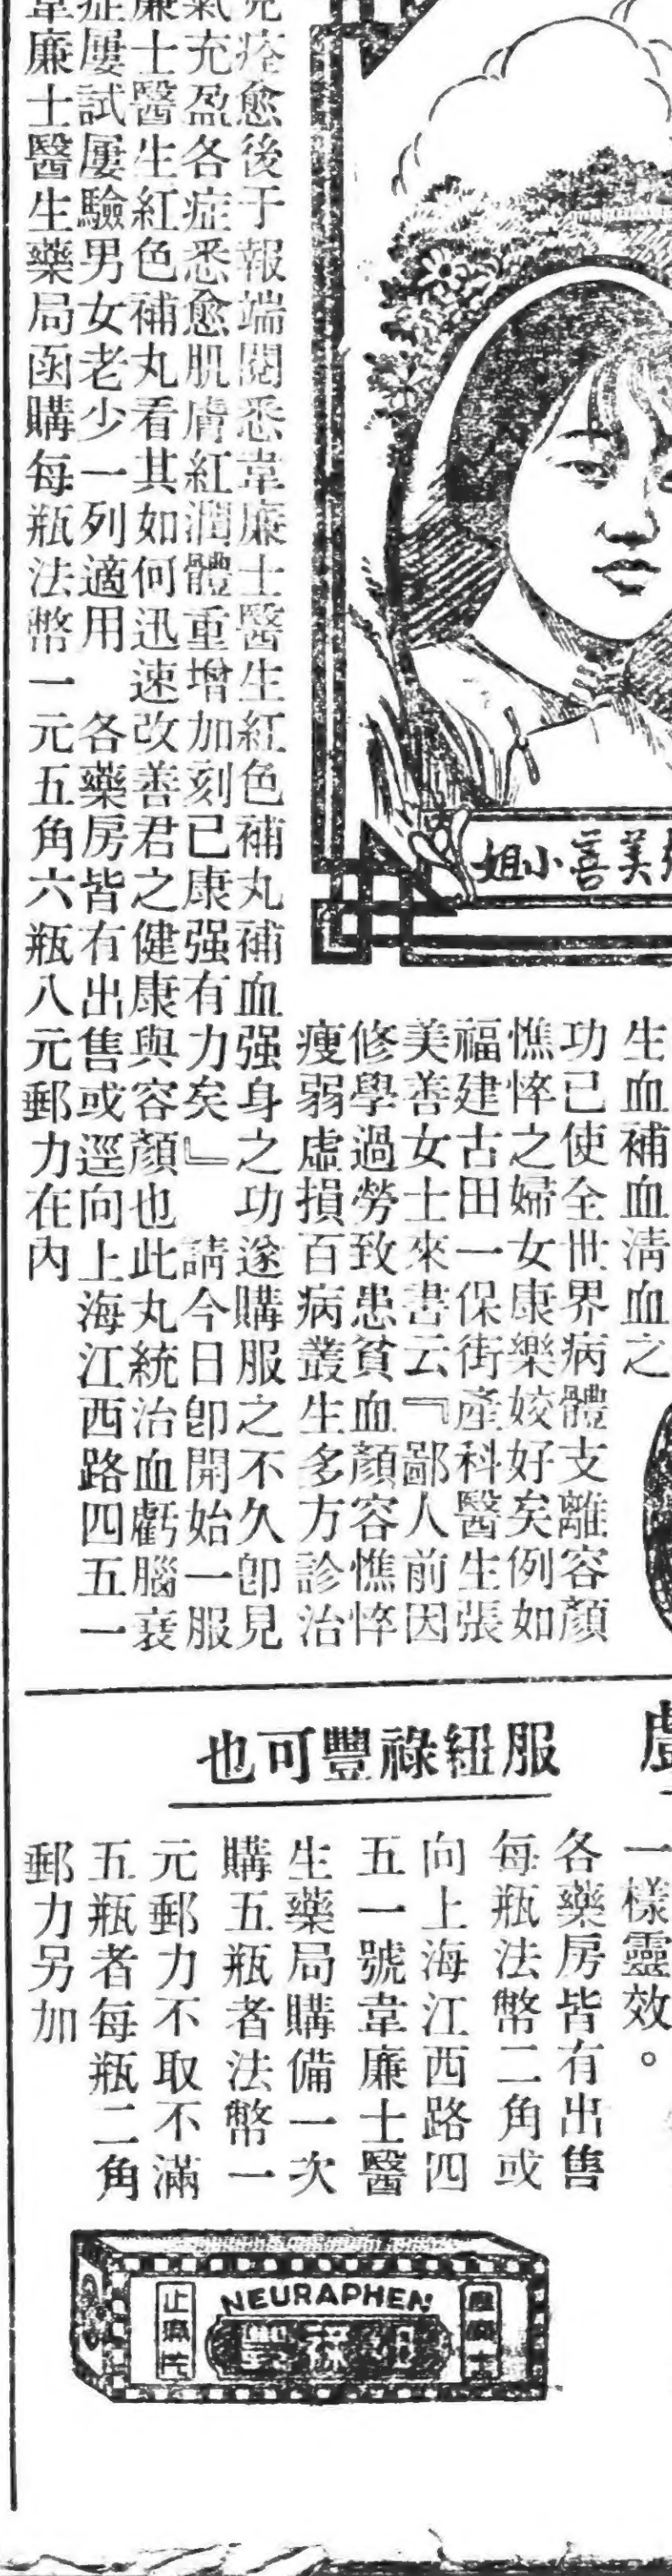 美善小姐
生血補血淸血之
功已使全世界病體支離容顏
憔悴之婦女康樂姣好矣例如
福建古田一保街產科醫生張
美善女士來書云『鄙人前因
修學過勞致患貧血顏容憔悴
瘦弱虛損百病叢生多方診治
痊愈後于報端閱悉韋廉士醫生紅色補丸補血强身之功遂購服之不久卽見
氣充盈各症悉愈肌膚紅潤體重增加刻已康强有力矣』　請今日卽開始一服
廉士醫生紅色補丸看其如何迅速改善君之健康與容顏也此丸統治血虧腦衰
症屢試屢驗男女老少一列適用　各藥房皆有出售或逕向上海江西路四五一
韋廉士醫生藥局函購每瓶法幣一元五角六瓶八元郵力在內
服紐祿豐可也
一樣靈效。
各藥房皆有出售
每瓶法幣二角或
向上海江西路四
五一號韋廉士醫
生藥局購備一次
購五瓶者法幣一
元郵力不取不滿
五瓶者每瓶二角
郵力另加
NEURAPHEN
紐祿豐
止痛片